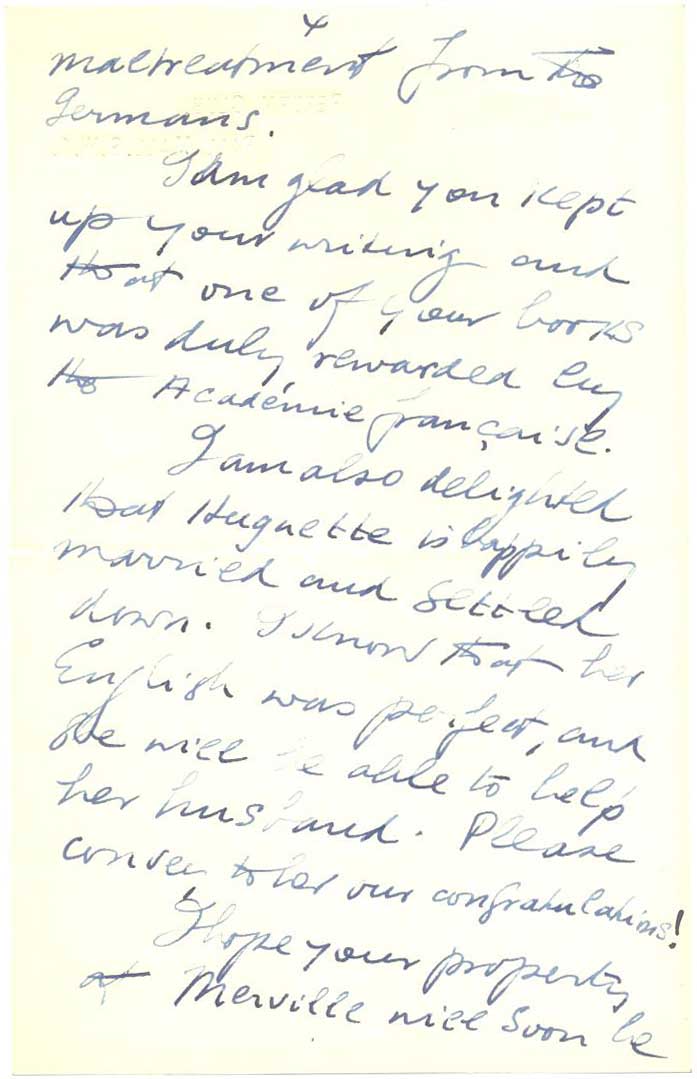 4
maltreatment from the
Germans.
I am glad you kept
up your writing and
that one of your books
was duly rewarded by
the Académie française.
I am also delighted
that Huguette is happily
married and settled
down. I know that her
English was perfect, and
she will be able to help
her husband. Please
convey to her our congratulations!
I hope your property
at Merville will soon be